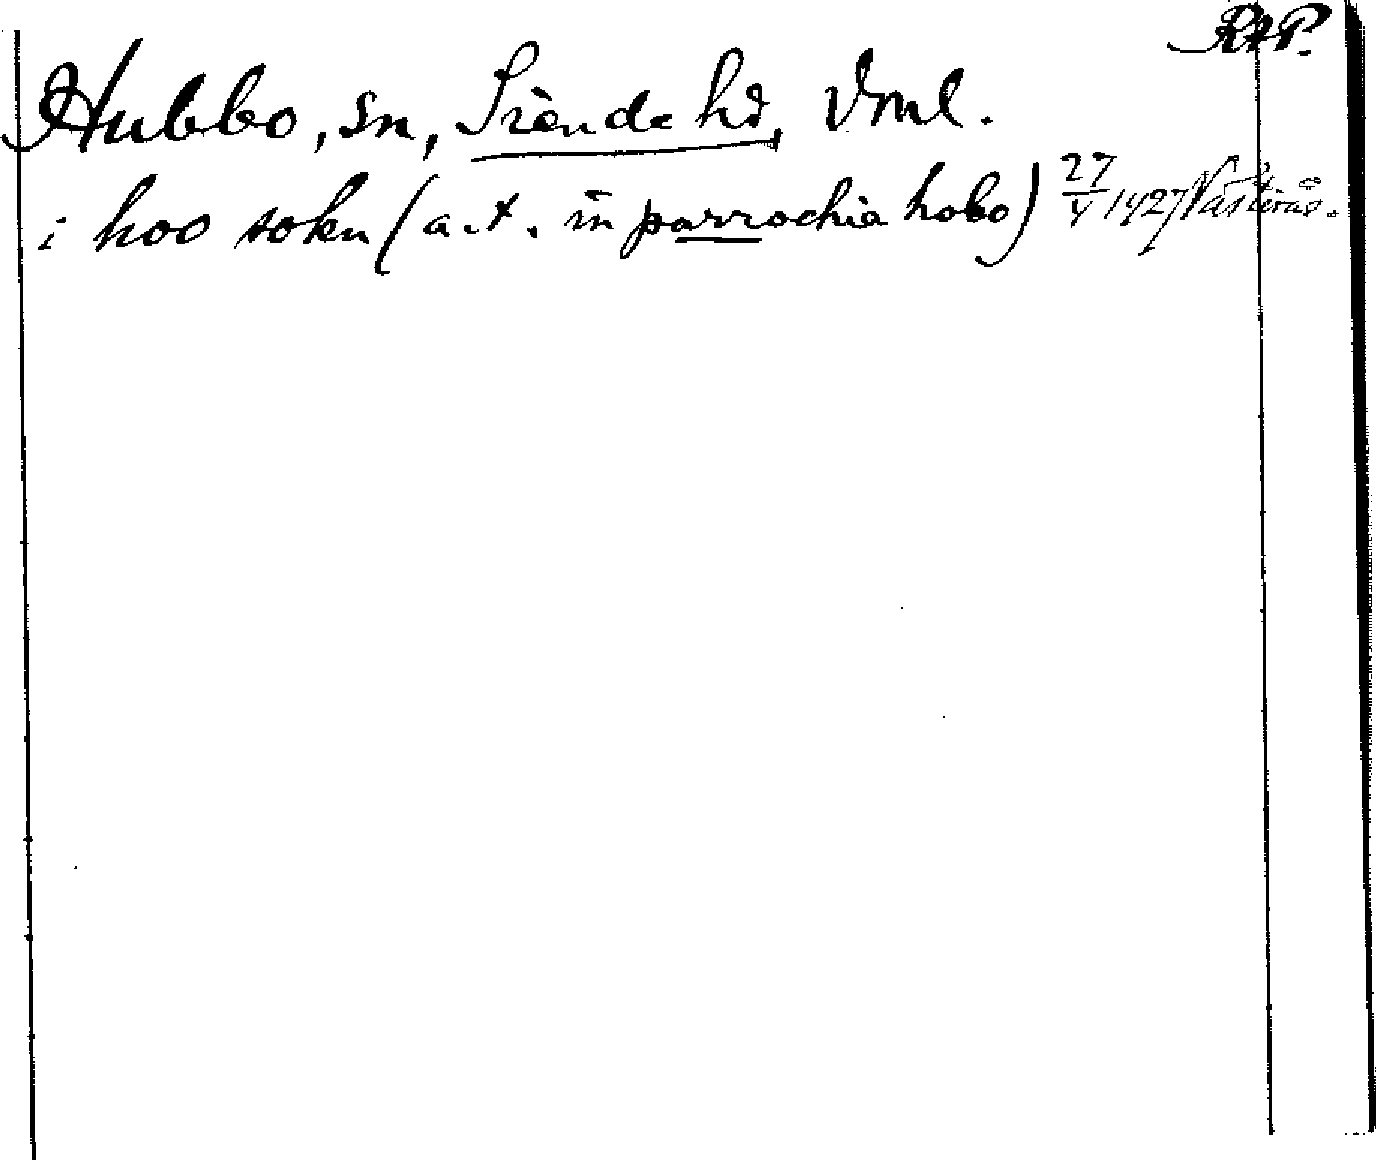 RAP.
Hubbo, sn, Siende hd, Vml.
i hoo sokn (a.t. in parrochia hobo) 27/V 1427 Västerås.